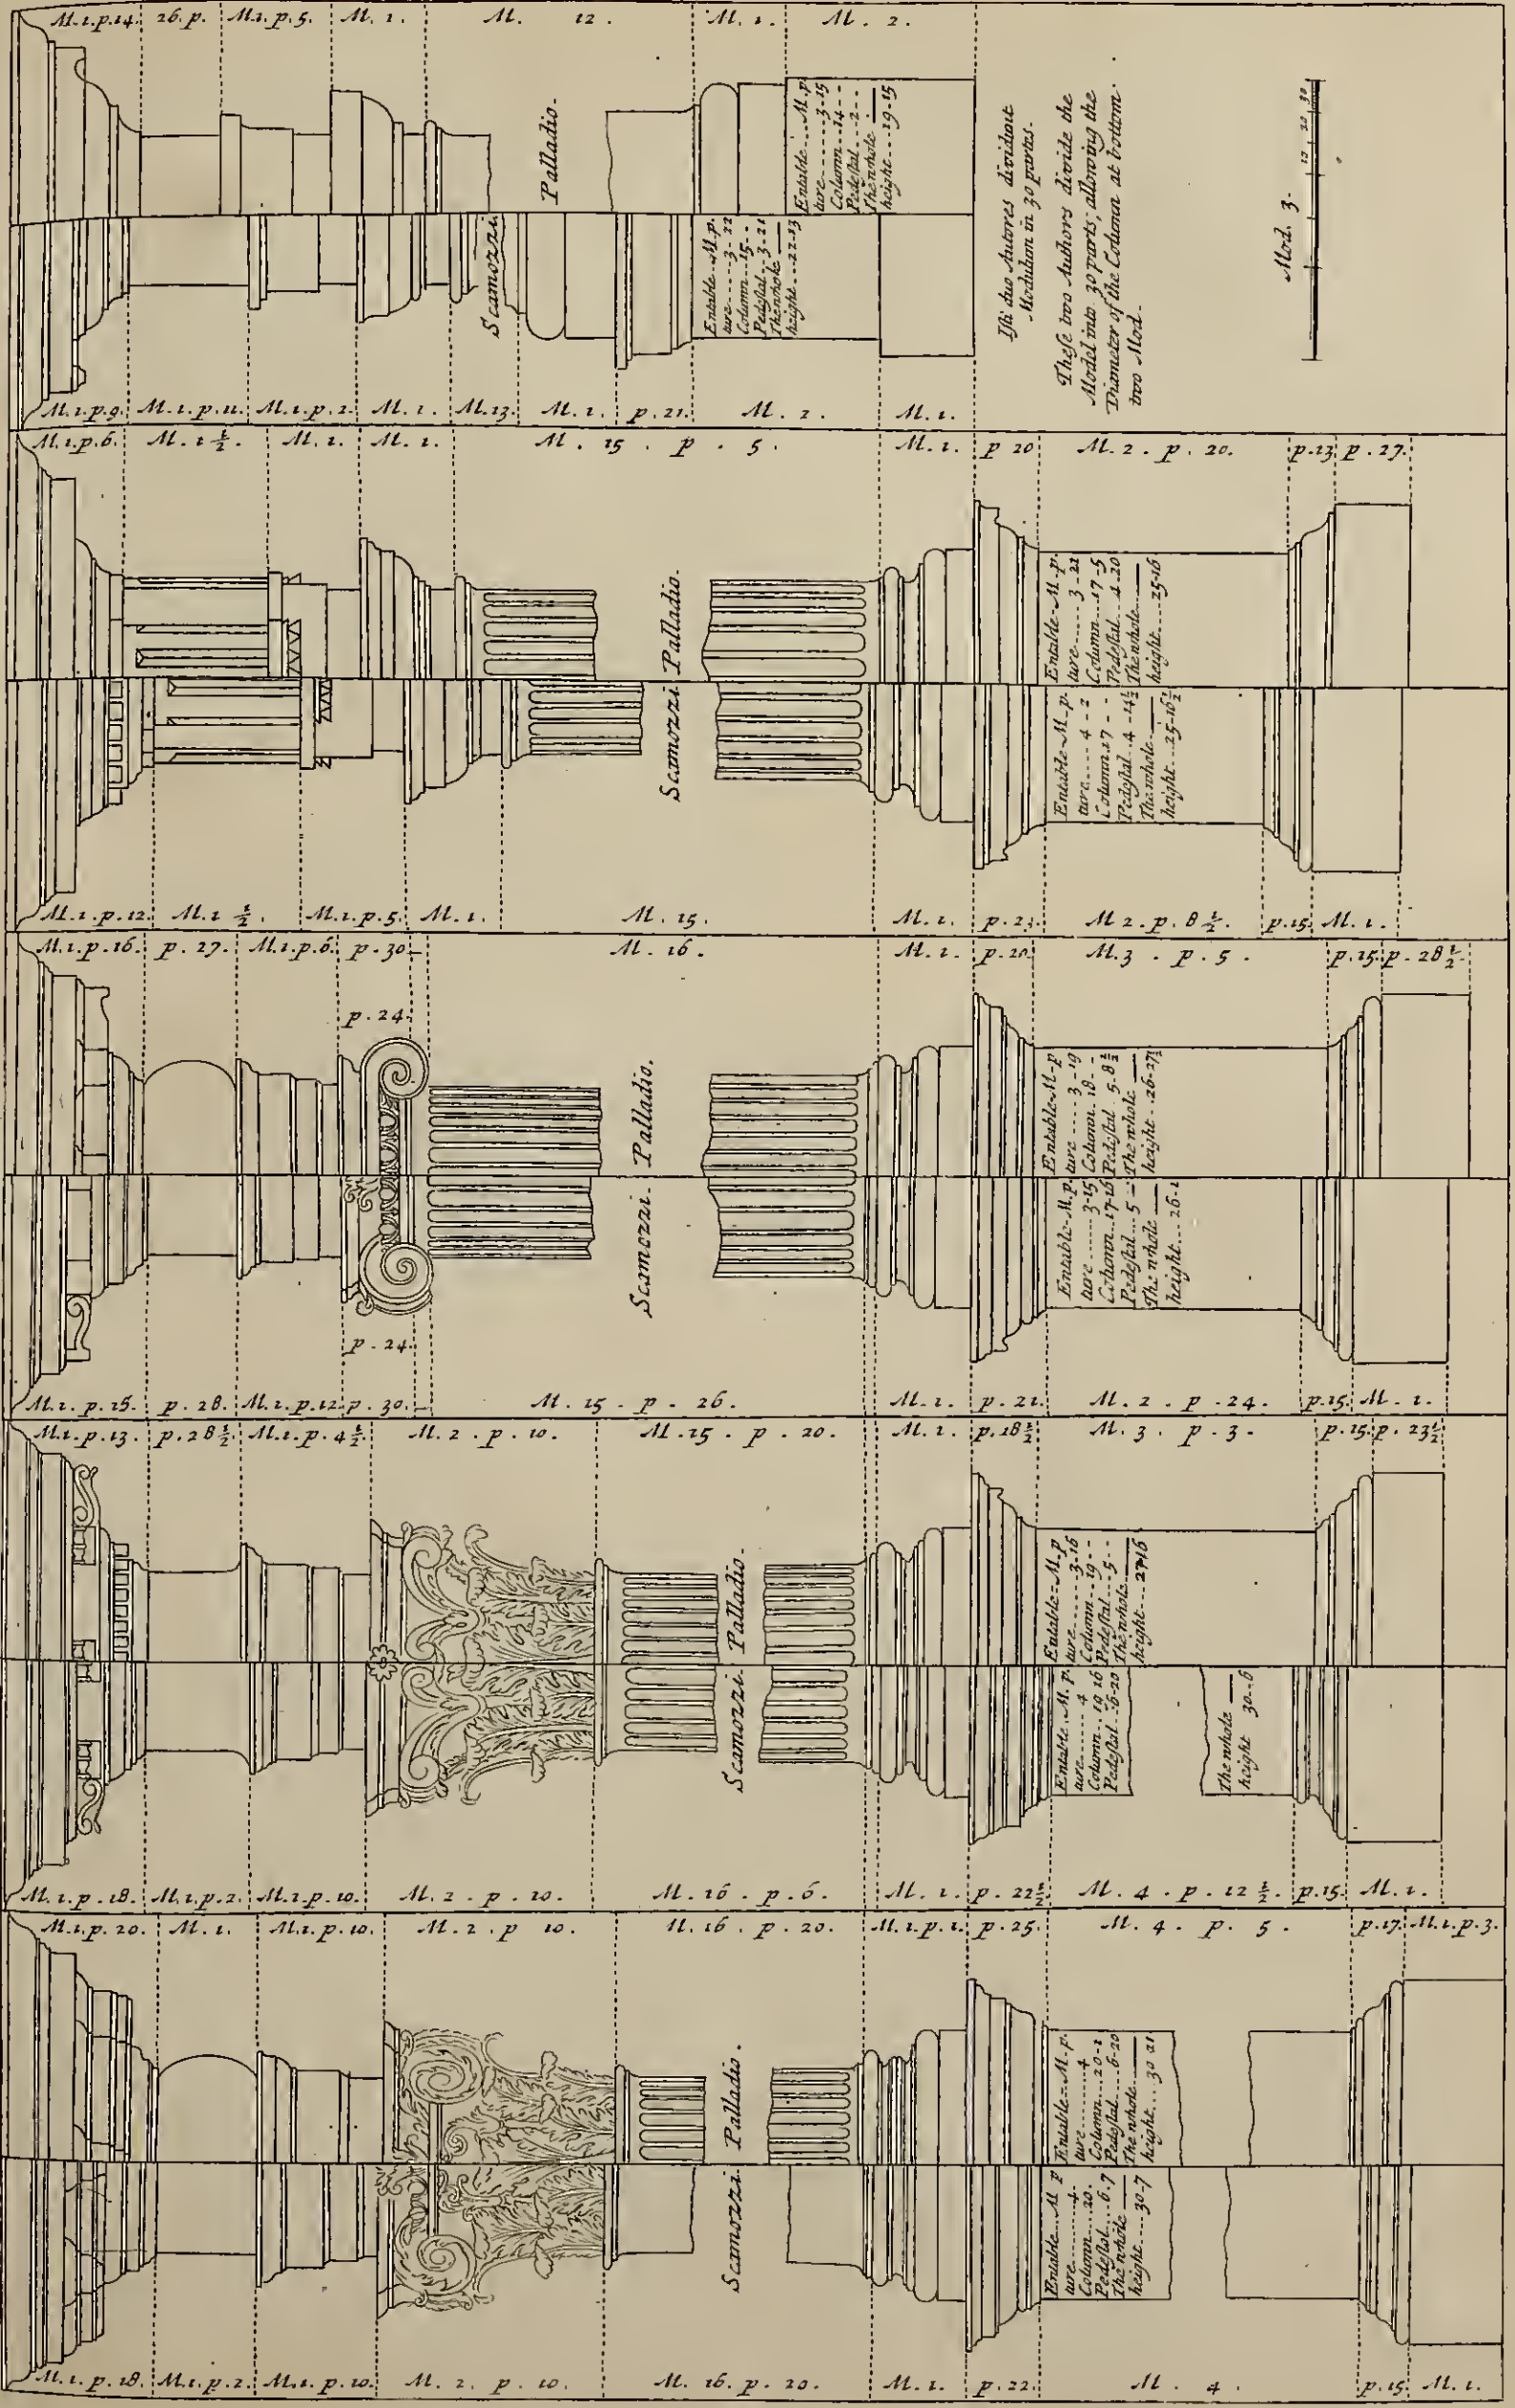 M.1.p.14. 26.p. M.1.p.5. M.1. M. 12 M.1. M.2.
Palladio.
Entable...M.p
ture.......3-15
Column...14--
Pedestal...2--
The whole
height...19-15
Scamozzi.
Entable...M.p.
ture.....3-22
Column...15--
Pedestal..3-21
The whole
height...22-13
Isti duo Autores dividunt
Modulum in 30 partes.
These two Authors divide the
Model into 30 parts, allowing the
Diameter of the Column at bottom.
two Mod.
Mod. 3.
10 20 30
M.1.p.9. M.1.p.11. M.1.p.2. M.1. M.13. M.1. p.21. M.2. M.1.
M.1.p.6. M.1½. M.1. M.1. M.15.p.5. M.1. p 20 M.2.p.20. p.13 p.27.
Palladio.
Entable-M.p.
ture.....3-21
Column...17-5
Pedestal..4-20
The whole
height....25-16
Scamozzi
Entable-M.p.
ture.....4-2
Column.17--
Pedestal..4-14½
The whole
height...25-16½
M.1.p.12. M.1½. M.1.p.5. M.1. M.15. M.1. p.21. M 2.p.8½. p.15. M.1.
M.1.p.16. p.27. M.1.p.6. p.30 M.16. M.1. p.20. M.3.p.5. p.15. p.28½.
p.24.
Palladio.
Entable-M.p
ture.....3-19
Column.18--
Pedestal 5.8½
The whole
height...26-27½
Scamozzi.
Entable-M.p.
ture......3-15
Column..17-16
Pedestal...5-
The whole
height...26-1
p.24.
M.1.p.15. p.28. M.1.p.12. p.30. M.15-p-26. M.1. p.21. M.2.p.24. p.15. M.1.
M.1.p.13. p.28½. M.1.p.4½. M.2.p.10. M.15.p.20. M.1. p.18½. M.3.p.3. p.15. p.23½
Palladio.
Entable-M.p
ture......3-16
Column..19--
Pedestal...5--
The whole
height...27-16
Scamozzi.
Entable.M.p.
ture......4
Column..19 16
Pedestal..6-20
The whole
height 30-6
M.1.p.18. M.1.p.2. M.1.p.10. M.2.p.10. M.16.p.6. M.1. p.22½ M.4.p.12½. p.15. M.1.
M.1.p.20. M.1. M.1.p.10. M.2.p 10. M.16.p.20. M.1.p.1. p.25. M.4.p.5. p.17. M.1.p.3.
Palladio.
Entable-M.p.
ture.......4
Column...20-1
Pedestal...6-20
The whole
height...30 21
Scamozzi
Entable...M p
ture.......4.
Column...20.
Pedestal...6.7
The whole
height...30-7
M.1.p.18. M.1.p.2. M.1.p.10. M.2.p.10. M.16.p.20. M.1. p.22. M.4. p.15. M.1.